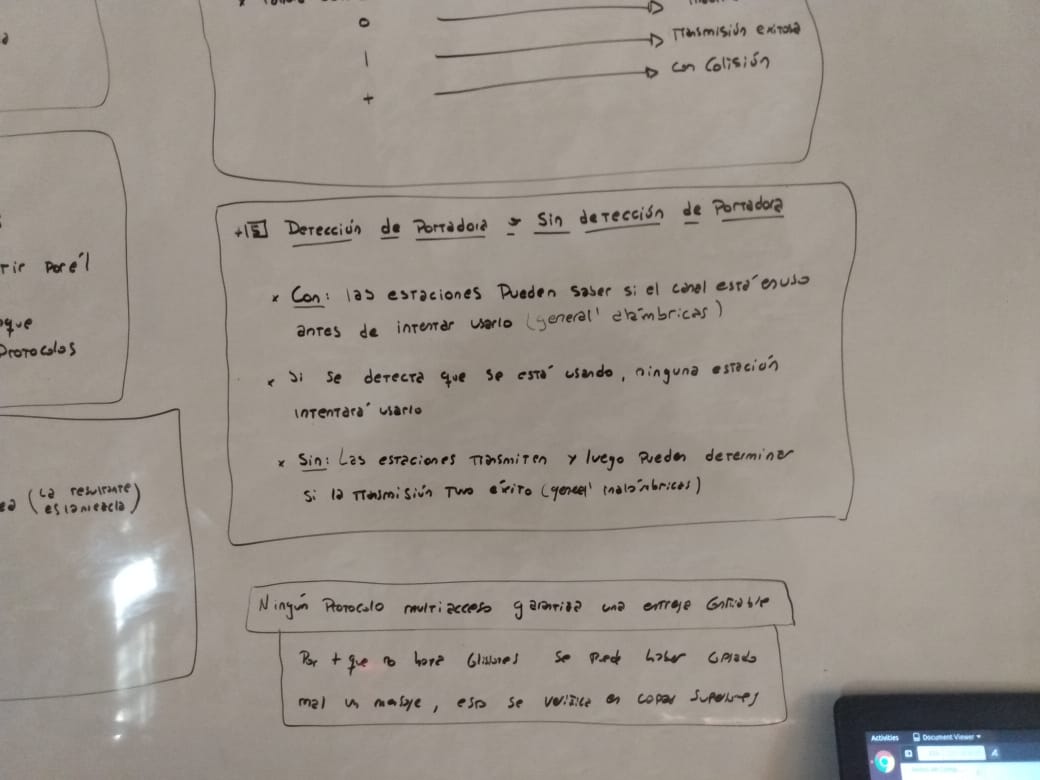 0
1
+
Transmisión exitosa
con Colisión
+15 Detección de Portadora y Sin detección de Portadora
x Con: las estaciones Pueden saber si el canal está en uso
antes de intentar usarlo (general' alámbricas)
x Si se detecta que se está usando, ninguna estación
intentará usarlo
x Sin: Las estaciones Transmiten y luego pueden determinar
si la Transmisión Tuvo éxito (general' inalámbricas)
tir por él
que
Protocolos
(La resultante
es la mezcla)
Ningún Protocolo multiacceso garantiza una entrega Confiable
Por + que no haya Colisiones se puede haber copiado
mal un mensaje, esto se verifica en capas Superiores
Activities Document Viewer